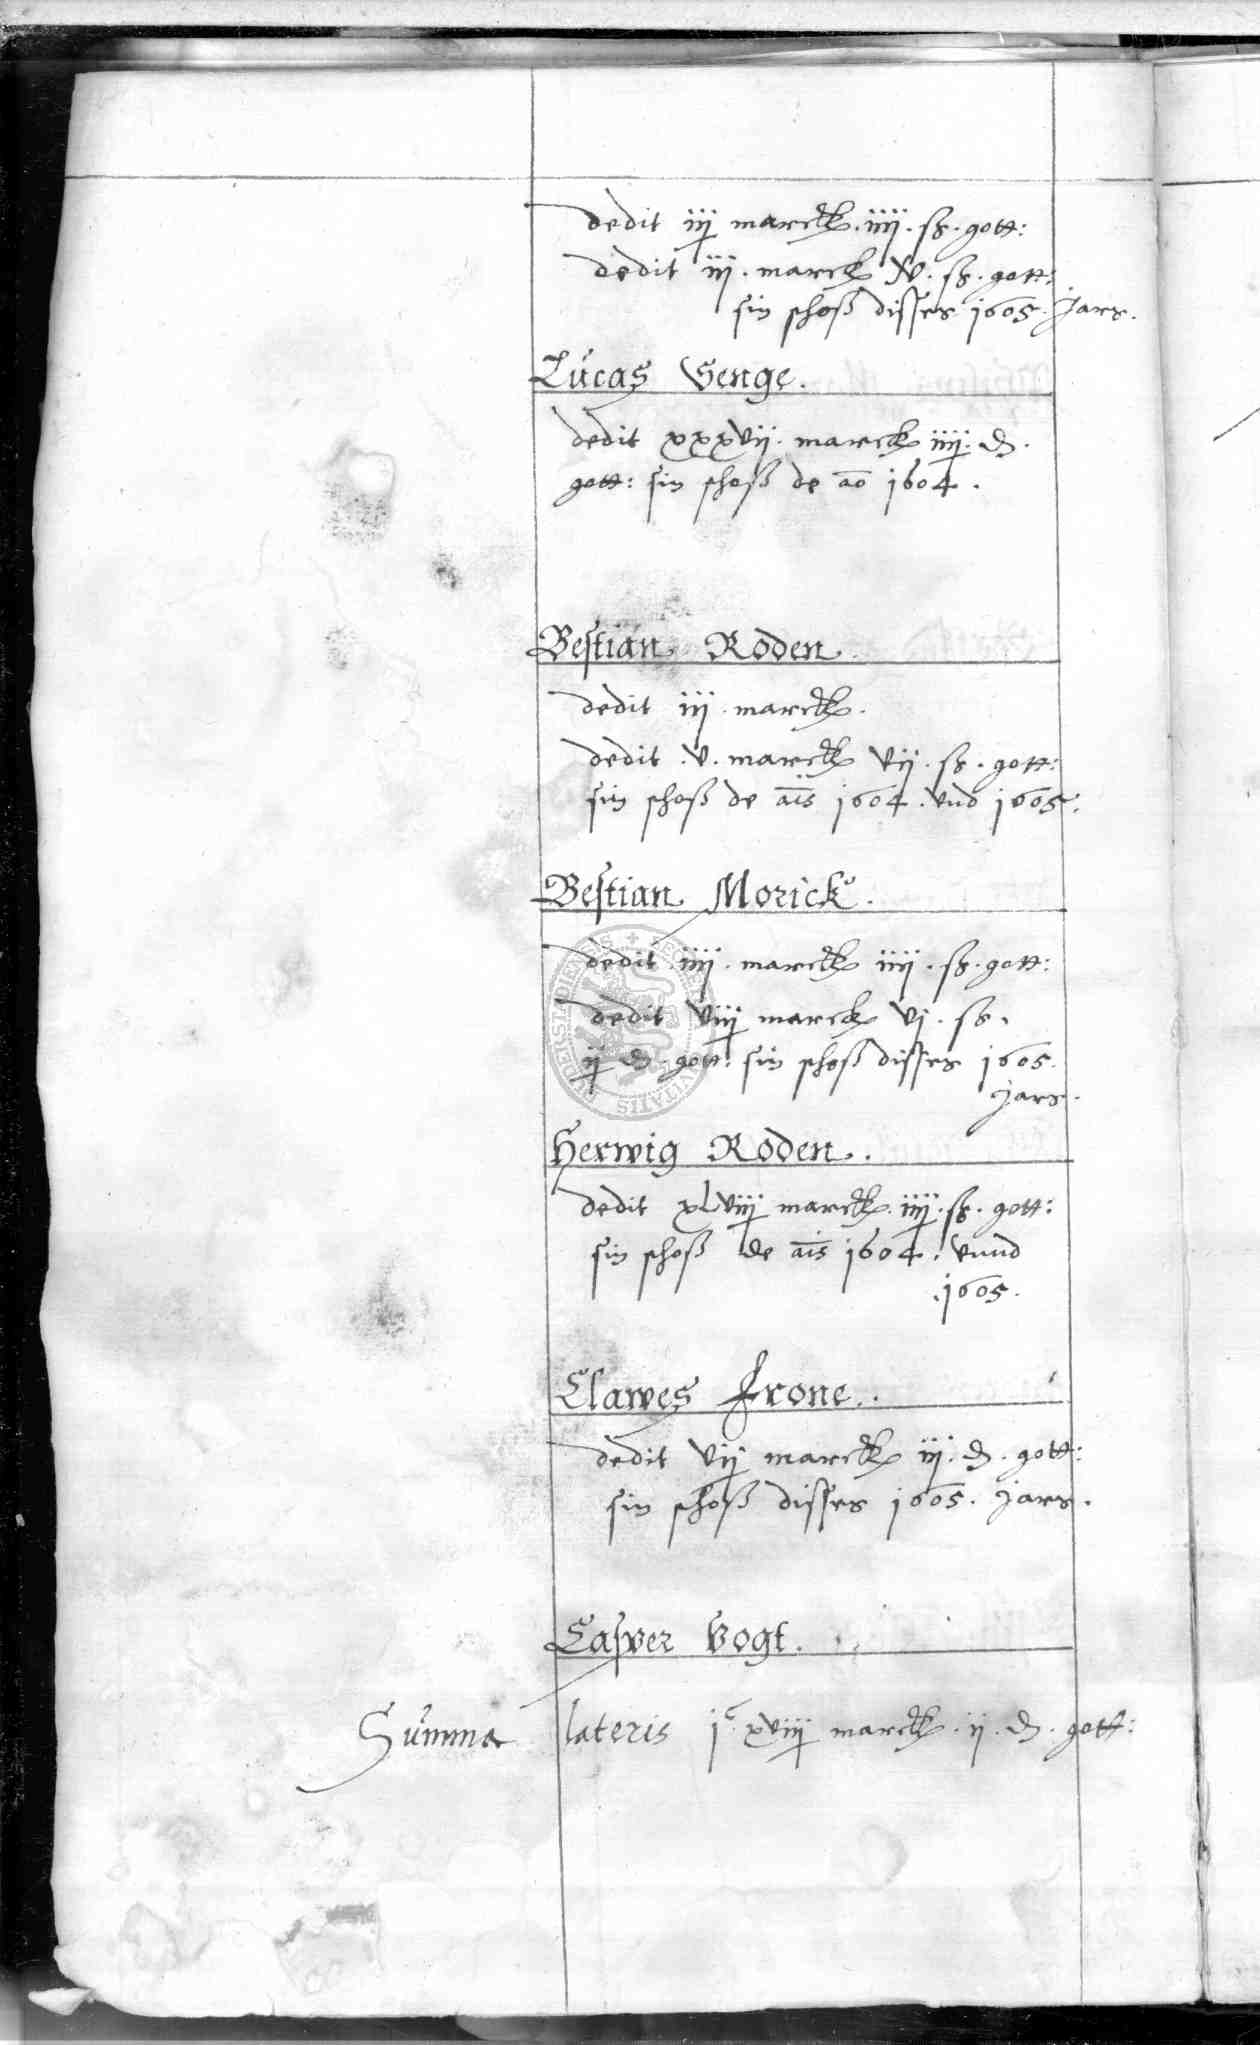 dedit iij marck. iiij. ß. gott:
dedit iij. marck xv. ß. gott:
sin schoß disses 1605. jars.
Lucas Genge.
dedit xxxvij. marck iiij. d.
gott: sin schoß de ao 1604.
Bestian Roden
dedit iij. marck.
dedit .v. marck vij. ß. gott:
sin schoß de ais 1604. vnd 1605.
Bestian Morick.
dedit iiij. marck iiij. ß. gott:
dedit viij marck vj. ß.
ij d. gott: sin schoß disses 1605.
jars.
Herwig Roden.
dedit xLviij marck. iiij. ß. gott:
sin schoß de ais 1604. vnnd
1605.
Clawes Frone.
dedit vij marck iij. d. gott:
sin schoß disses 1605. jars.
Casper Vogt.
Summa lateris jc. xviij marck. ij. d. gott: